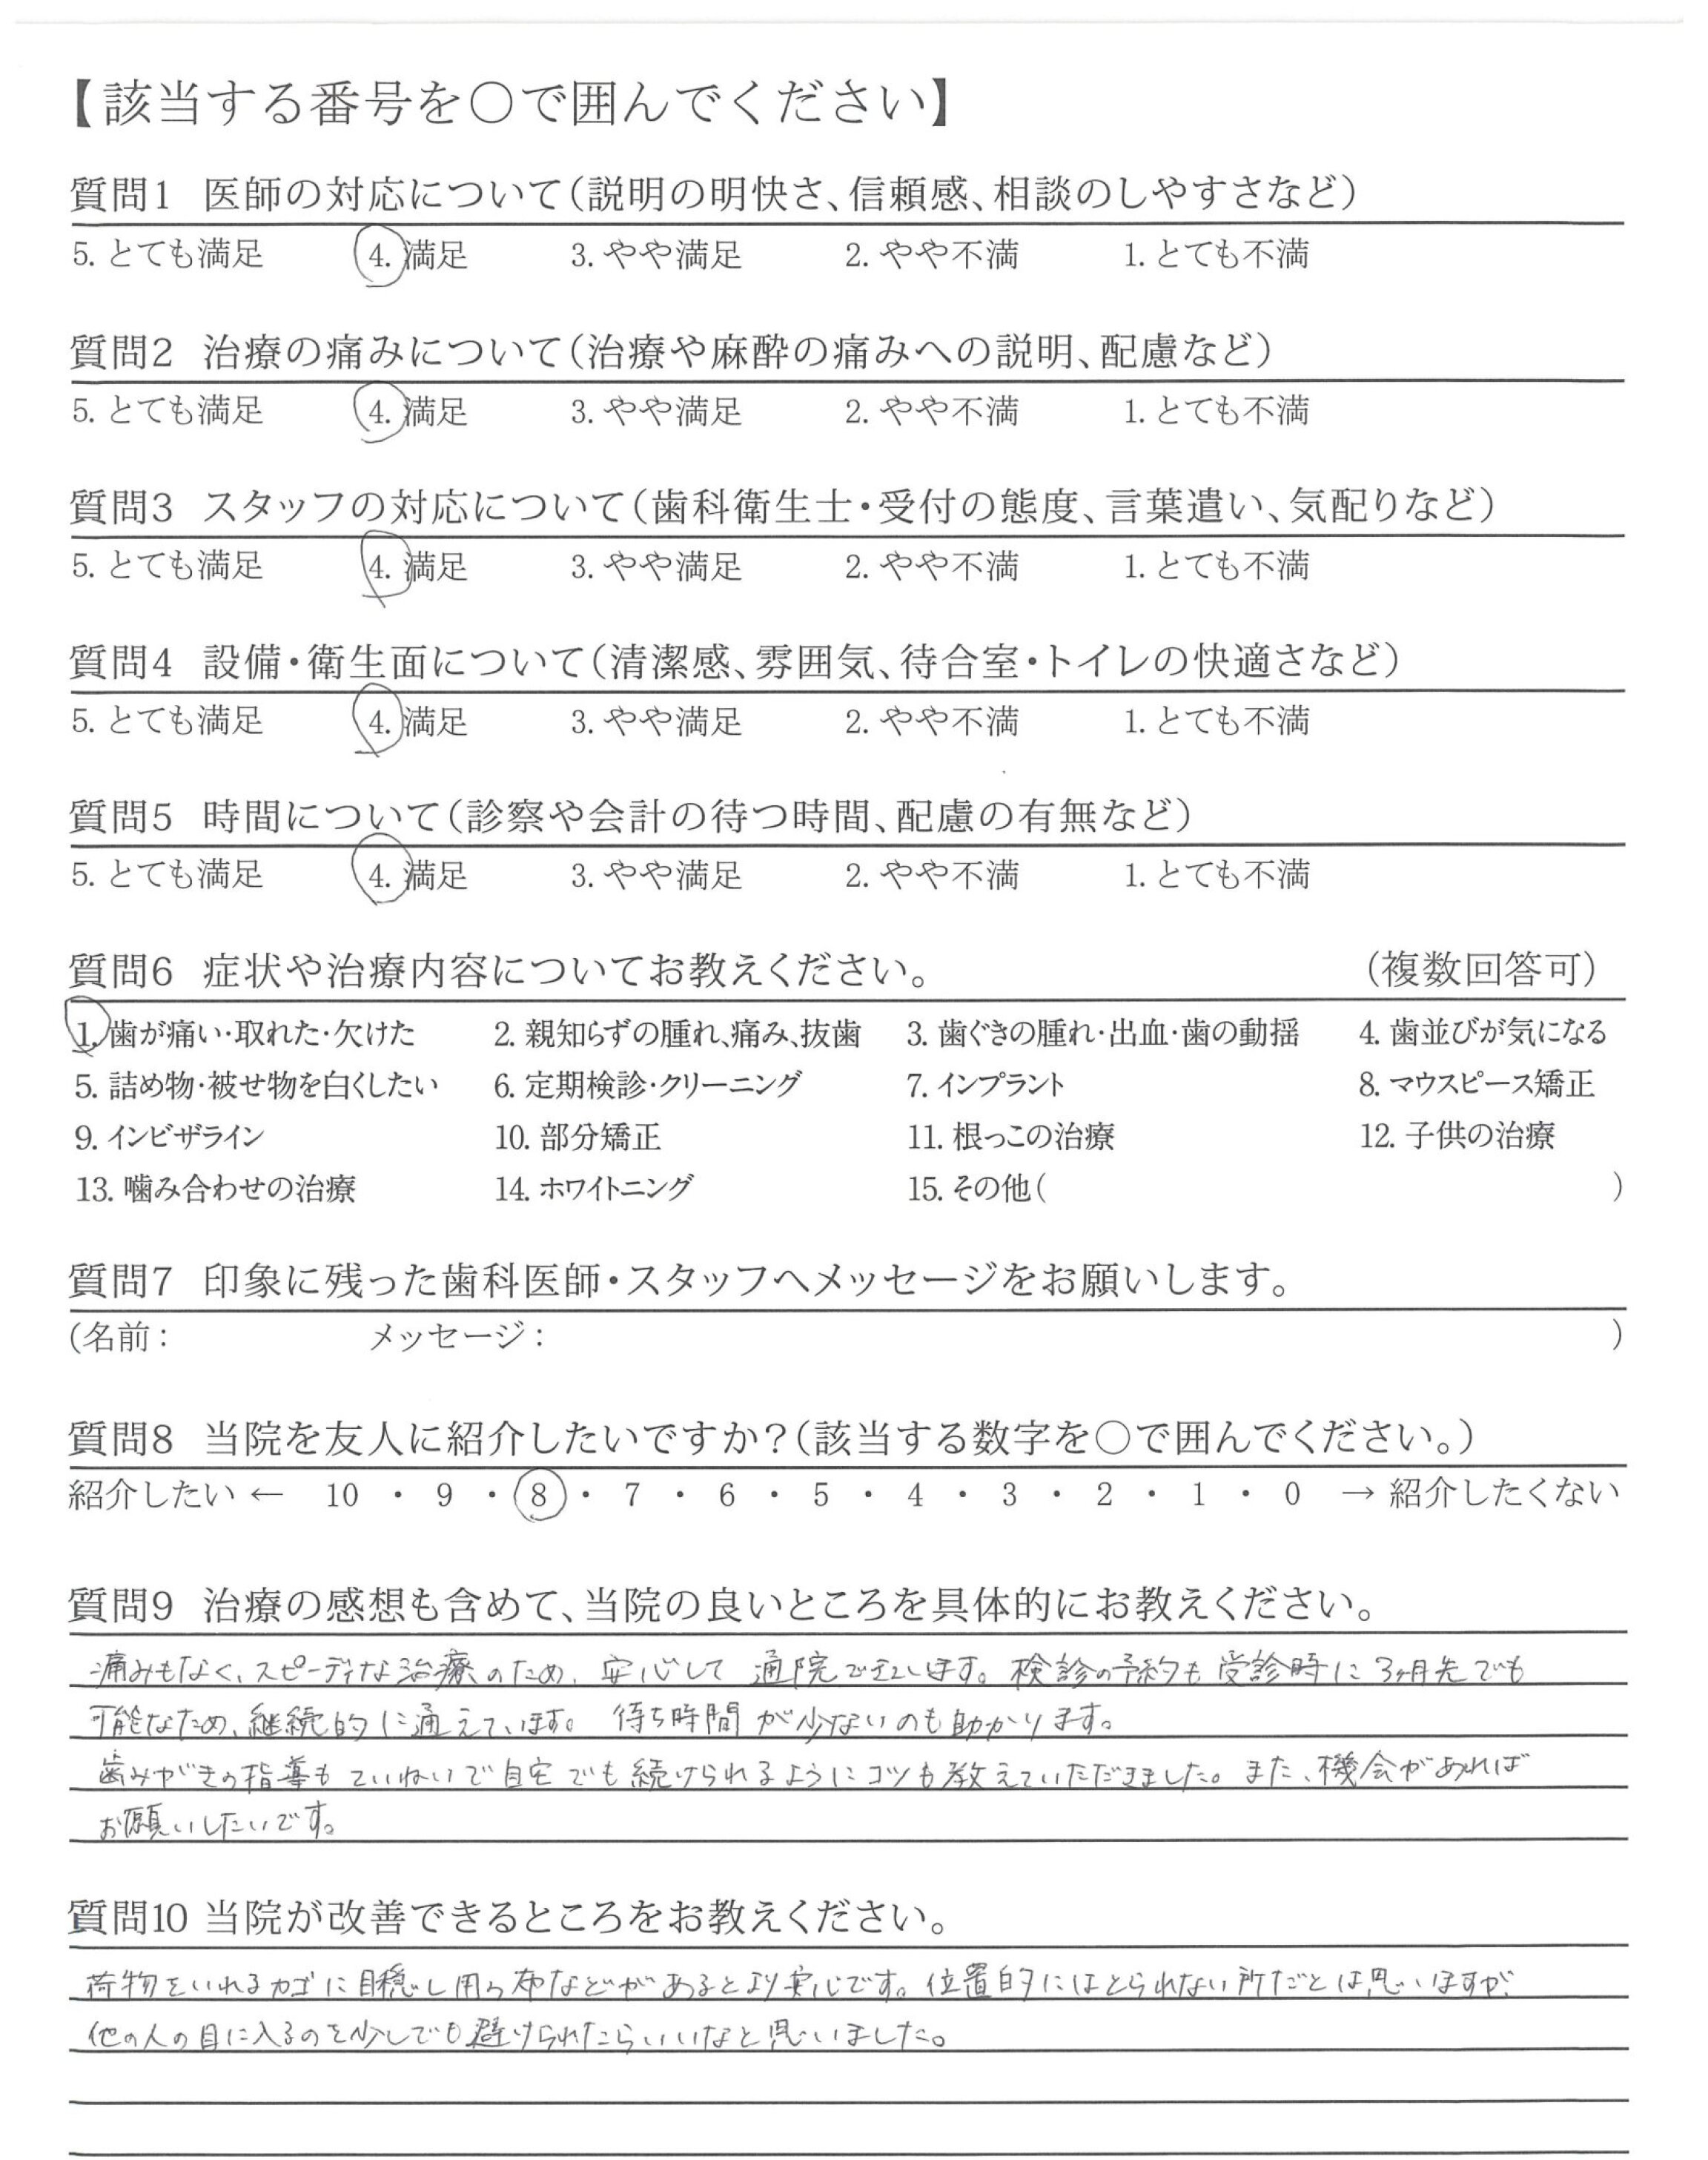 【該当する番号を〇で囲んでください】
質問1 医師の対応について(説明の明快さ、信頼感、相談のしやすさなど)
5. とても満足 4. 満足 3. やや満足 2. やや不満 1. とても不満
質問2 治療の痛みについて(治療や麻酔の痛みへの説明、配慮など)
5. とても満足 4. 満足 3. やや満足 2. やや不満 1. とても不満
質問3 スタッフの対応について(歯科衛生士・受付の態度、言葉遣い、気配りなど)
5. とても満足 4. 満足 3. やや満足 2. やや不満 1. とても不満
質問4 設備・衛生面について(清潔感、雰囲気、待合室・トイレの快適さなど)
5. とても満足 4. 満足 3. やや満足 2. やや不満 1. とても不満
質問5 時間について(診察や会計の待つ時間、配慮の有無など)
5. とても満足 4. 満足 3. やや満足 2. やや不満 1. とても不満
質問6 症状や治療内容についてお教えください。 (複数回答可)
1. 歯が痛い・取れた・欠けた 2. 親知らずの腫れ、痛み、抜歯 3. 歯ぐきの腫れ・出血・歯の動揺 4. 歯並びが気になる
5. 詰め物・被せ物を白くしたい 6. 定期検診・クリーニング 7. インプラント 8. マウスピース矯正
9. インビザライン 10. 部分矯正 11. 根っこの治療 12. 子供の治療
13. 噛み合わせの治療 14. ホワイトニング 15. その他( )
質問7 印象に残った歯科医師・スタッフへメッセージをお願いします。
(名前: メッセージ: )
質問8 当院を友人に紹介したいですか?(該当する数字を〇で囲んでください。)
紹介したい ← 10 ・ 9 ・ 8 ・ 7 ・ 6 ・ 5 ・ 4 ・ 3 ・ 2 ・ 1 ・ 0 → 紹介したくない
質問9 治療の感想も含めて、当院の良いところを具体的にお教えください。
痛みもなく、スピーディな治療のため、安心して通院できています。検診の予約も受診時に3ヶ月先でも
可能なため、継続的に通えています。 待ち時間が少ないのも助かります。
歯みがきの指導もていねいで自宅でも続けられるようにコツも教えていただきました。また、機会があれば
お願いしたいです。
質問10 当院が改善できるところをお教えください。
荷物をいれるカゴに目隠し用の布などがあるとより安心です。位置的にはとられない所だとは思いますが、
他の人の目に入るのを少しでも避けられたらいいなと思いました。